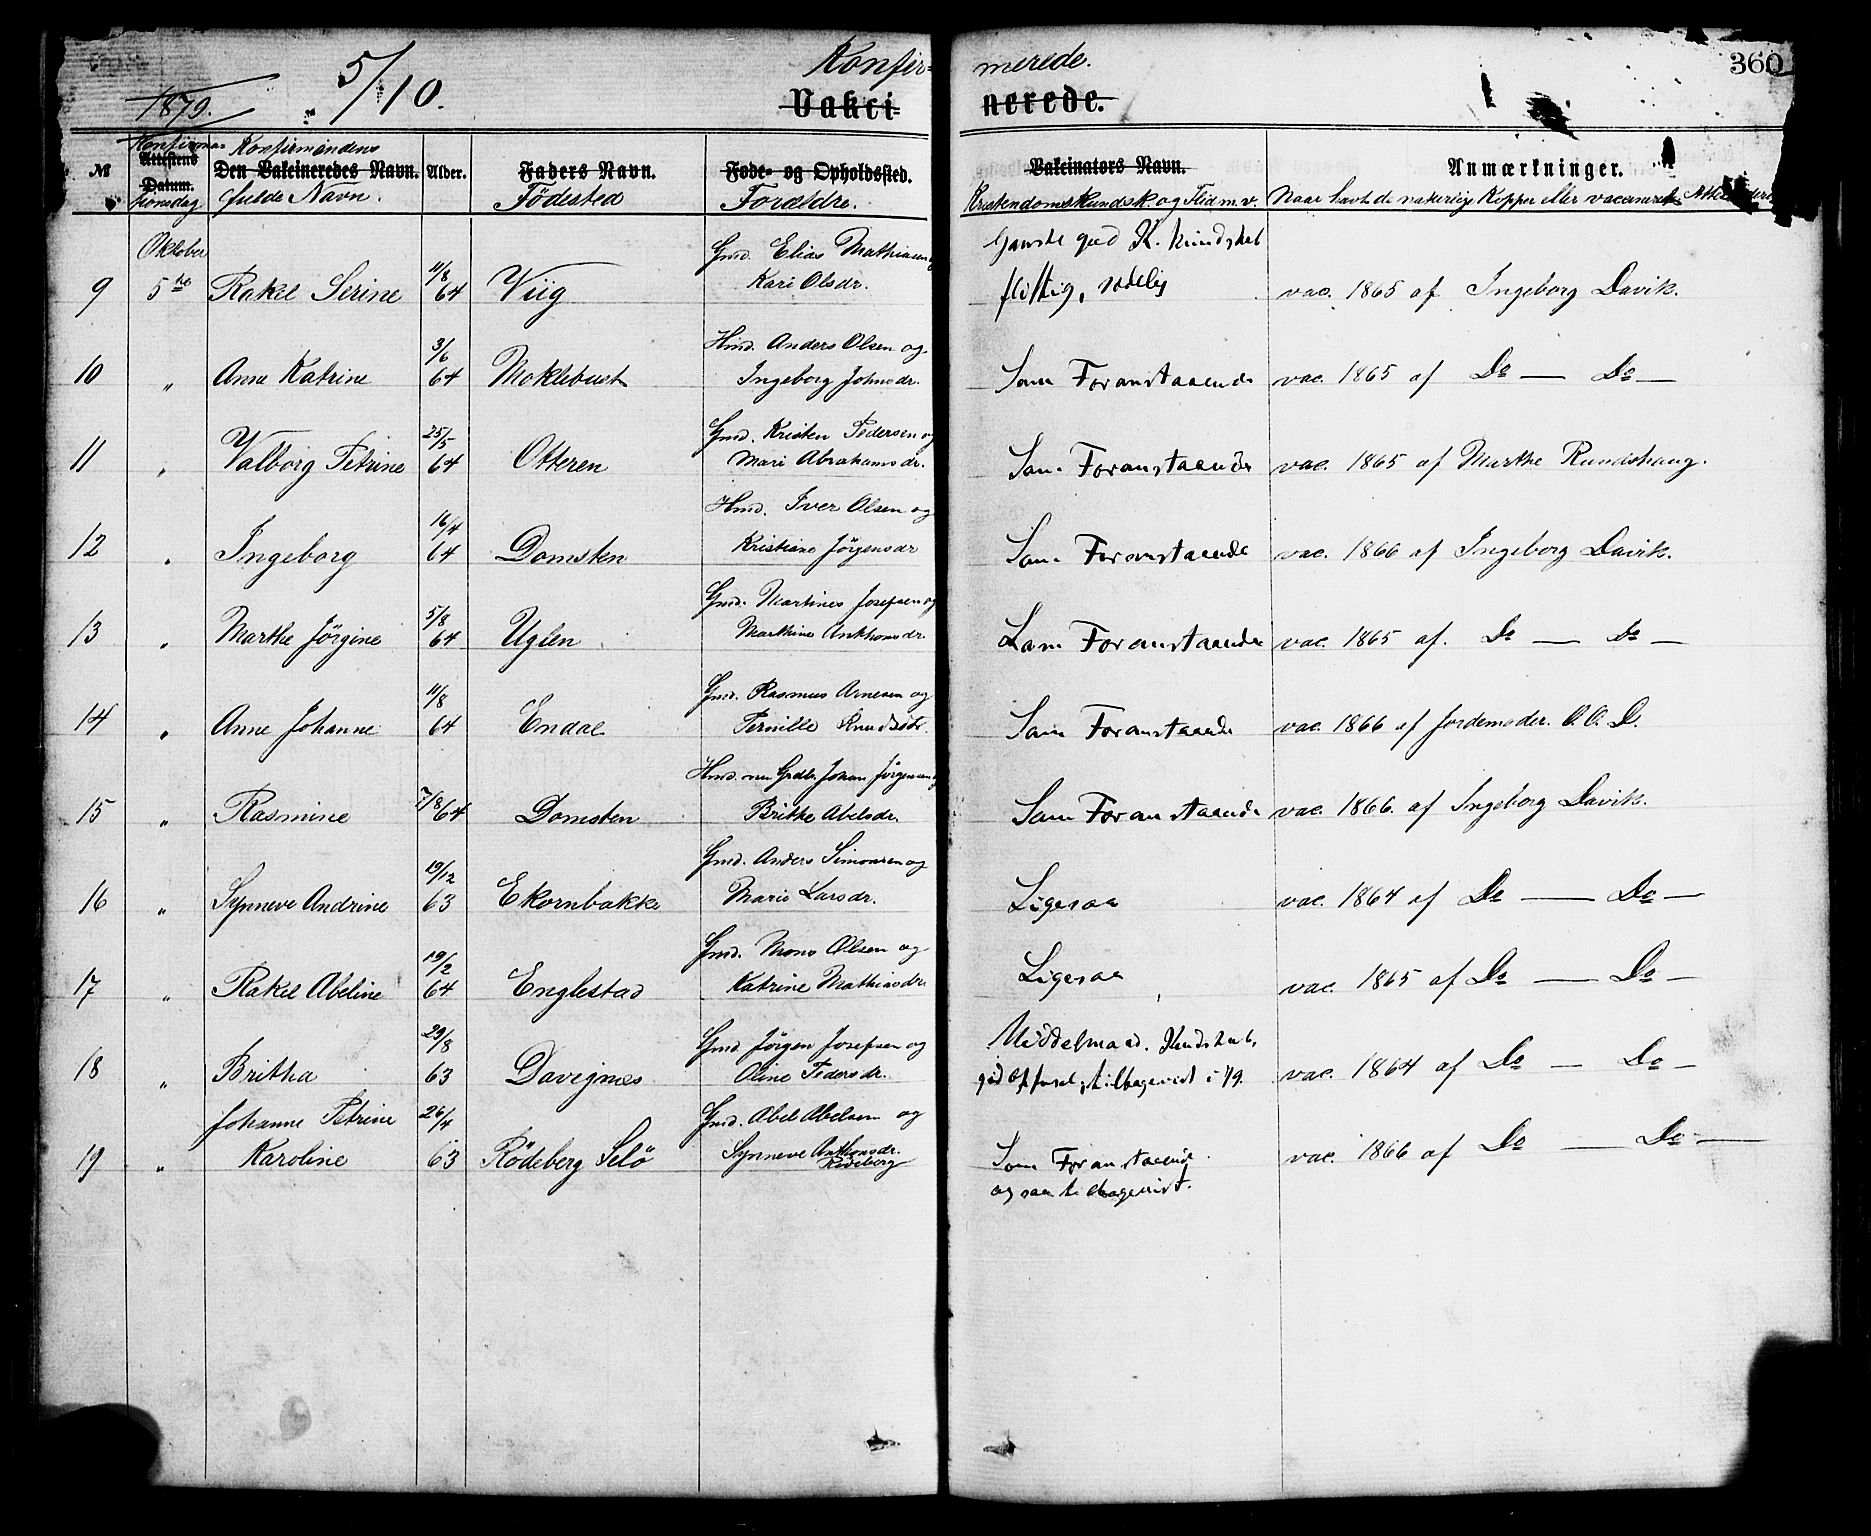 360
1879. 5/10. Konfir= merede.
Vakci- nerede.
№ Attestens Datum. Den Vakcineredes Navn. Alder. Faders Navn. Føde- og Opholdssted. Vakcinators Navn. Anmærkninger.
Konfirma= tionsdag Konfirmandens fulde Navn. Födested Forældre. Kristendomskundsk. og Flid m. v. Naar havt de naturlige Kopper eller vaccineret
Oktober 11/8 Gmd. Elias Mathiasen og Ganske god K. kundskab
9 5te Rakel Serine 64 Viig Kari Olsdr. flittig, sædelig vac. 1865 af Ingeborg Davik.
3/6 Hmd. Anders Olsen og
10 " Anne Katrine 64 Moklebust Ingeborg Johnsdr. Som Foranstaaende vac. 1865 af Do — Do —
25/5 Gmd. Kristen Pedersen og
11 " Valborg Petrine 64 Otteren Mari Abrahamsdr. Som Foranstaaende vac. 1865 af Marthe Rundshaug.
16/4 Hmd. Iver Olsen og
12 " Ingeborg 64 Domsten Kristiane Jörgensdr Som Foranstaaende vac. 1866 af Ingeborg Davik.
5/8 Gmd. Martines Josefsen og
13 " Marthe Jörgine 64 Uglen Marthine Anthonsdr Som Foranstaaende vac. 1865 af. Do — Do —
11/8 Gmd. Rasmus Arnesen og
14 " Anne Johanne 64 Endal Pernille Knudsdr. Som Foranstaaende vac. 1866 af Jordemoder. O. O. D.
Hmd. nu Grdbr. Johan Jörgensen og
15 " Rasmine 7/8 64 Domsten Brithe Abelsdr. Som Foranstaaende vac. 1866. af Ingeborg Davik.
19/12 Gmd. Anders Simonsen og
16 " Synneve Andrine 63 Ekornbakke Marie Larsdr. Ligesaa vac. 1864 af Do — Do —
19/2 Gmd. Mons Olsen og
17 " Rakel Abeline 64 Englestad Katrine Mathiasdr. Ligesaa vac. 1865 af Do — Do —
29/8 Gmd. Jörgen Josefsen og Middelmaad. Kundskab,
18 " Britha 63 Davignes Oline Pedersdr. god Opførsel, tilbagevist i 79. vac. 1864 af Do — Do —
Johanne Petrine 26/4 Gmd. Abel Abelsen og
19 " Karoline 63 Rödeberg Selö Synneve Anthonsdr. Som Foranstaaende vac. 1866 af Do — Do —
Rödeberg ogsaa tilbagevist.